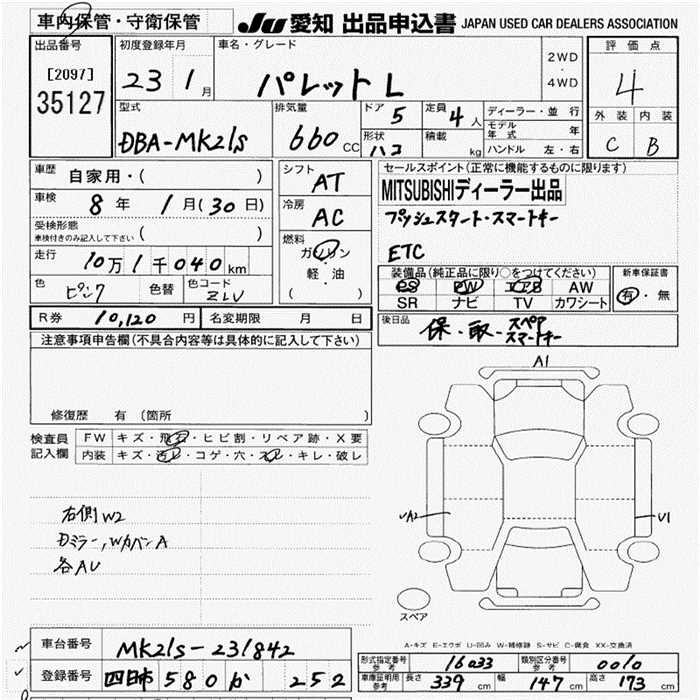 車内保管・守衛保管
JU 愛知 出品申込書 JAPAN USED CAR DEALERS ASSOCIATION
出品番号
[2097]
35127
初度登録年月
23 1月
車名・グレード
パレット L
2WD
・
4WD
評価点
4
外装 内装
C B
型式
DBA-MK21s
排気量
660 CC
ドア 5
定員 4人
形状 ハコ
積載 kg
ディーラー・並行
モデル年式 年
ハンドル 左・右
車歴 自家用・( )
車検 8年 1月(30日)
受検形態 ( )
車検付きのみ記入して下さい
走行 10万1千040km
色 ピンク 色替 色コード ZLV
シフト AT
冷房 AC
燃料
ガソリン
軽・油
( )
セールスポイント(正常に機能するものに限ります)
MITSUBISHIディーラー出品
プッシュスタート・スマートキー
ETC
装備品(純正品に限り○をつけてください)
PS PW エアB AW
SR ナビ TV カワシート
新車保証書
有・無
R券 10,120円 名変期限 月 日
後日品 保・取・スペア
スマートキー
注意事項申告欄(不具合内容等は具体的に記入して下さい)
修復歴 有(箇所 )
検査員
記入欄
FW キズ・飛石・ヒビ割・リペア跡・X要
内装 キズ・汚レ・コゲ・穴・スレ・キレ・破レ
右側W2
Dミラー,WカバンA
各AU
A1
A2
U1
スペア
A-キズ E-エクボ U-凹み W-補修跡 S-サビ C-腐食 XX-交換済
車台番号 MK21s-231842
登録番号 四日市 580 か 252
形式指定番号 参考 16033
類別区分番号 参考 0010
車庫証明用 参考 長さ 339cm 幅 147cm 高さ 173cm